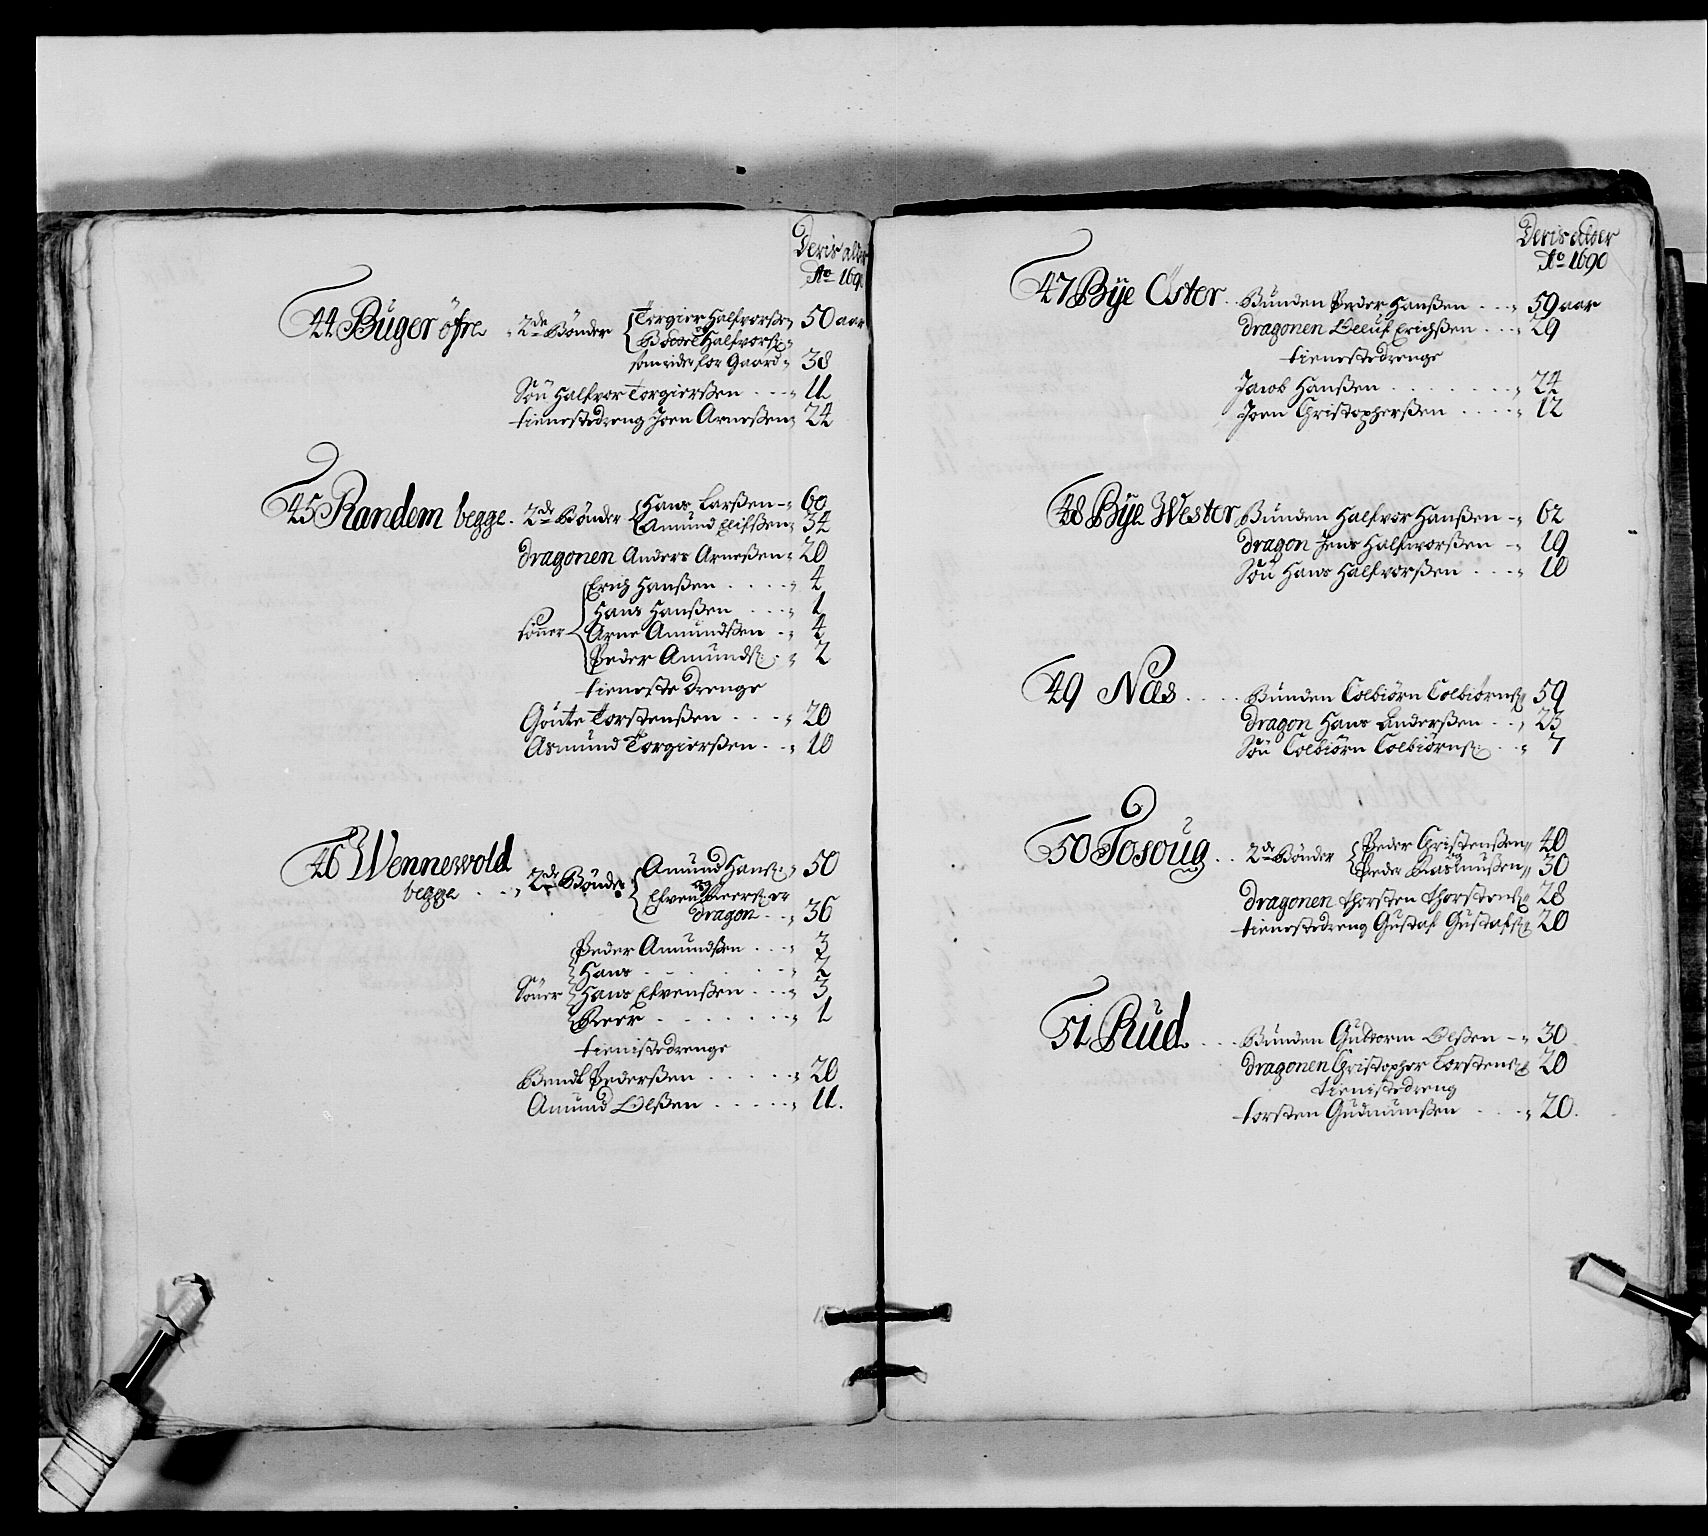 Deris alder
Ao 169
44 Buger öfre 2de Bönder Torgier Halfvorsen 50 aar
Halfvors:
som rider for Gaard 38
Sön Halfvor Torgierßen 11
tienestedreng Joen Arneßen 24
45 Randem begge 2de Bönder Hans Larßen 60
Amund Elifßen 34
dragonen Anders Arneßen 20
Erich Hanßen 4
Hans Hanßen 1
söner Arne Amundßen 4
Peder Amundß: 2
tieneste drenge
Göute Torstenßen 20
Asmund Torgierßen 10
46 Wennewold
begge 2de Bönder Amund Hanß: 50
og
dragon 36
Peder Amundßen 3
Hans 2
Söner Hans Efvenßen 3
Peer 1
tienistedrenge
Bendt Pederßen 20
Amund Olßen 11.
Deris alder
Ao 1690
47 Bÿe Öster Bunden Peder Hanßen 59 aar
dragonen Oeluf Erichßen 29
tienestedrenge
Jacob Hanßen 24
Joen Christopherßen 12
48 Bÿe Wester Bunden Halfvor Hanßen 62
dragon Jens Halfvorßen 19
Sön Hans Halfvorßen 10
49 Næs Bunden Colbiörn Colbiörnß: 59
dragon Hans Anderßen 23
Sön Colbiörn Colbiörnß: 7
50 Tosoug 2de Bönder Peder Christenßen 40
Peder Rasmußen 30
dragonen Thorsten Thorstenß: 28
tienestedreng Gustaf Gustafß: 20
51 Rud Bunden Gutorm Olßen 30
dragonen Christopher Torstenß: 20
tienistedreng
torsten Gudmunßen 20.